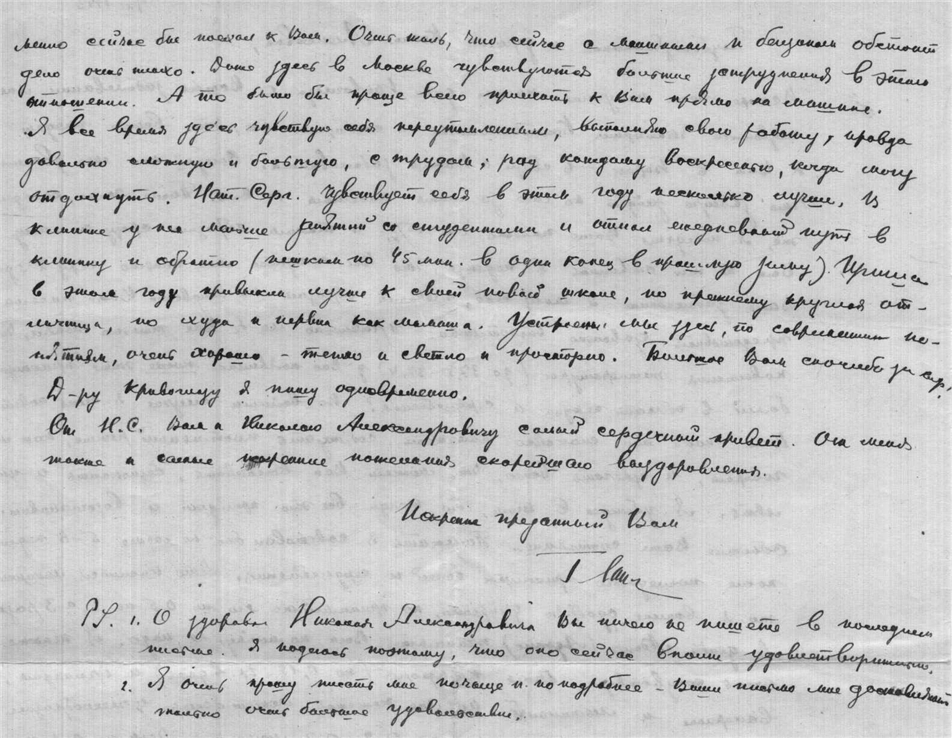 менно сейчас бы поехал к Вам. Очень жаль, что сейчас с машинами и бензином обстоит
дело очень плохо. Даже здесь в Москве чувствуются большие затруднения в этом
отношении. А то было бы проще всего приехать к Вам прямо на машине.
Я все время здесь чувствую себя переутомленным, выполняю свою работу, правда
довольно сложную и большую, с трудом; рад каждому воскресенью, когда могу
отдохнуть. Нат. Серг. чувствует себя в этом году несколько лучше. В
клинике у нее меньше занятий со студентами и отпал ежедневный путь в
клинику и обратно (пешком по 45 мин. в один конец в прошлую зиму). Ириша
в этом году привыкла лучше к своей новой школе, по прежнему круглая от-
личница, но худа и нервна как мамаша. Устроены мы здесь, по современным по-
нятиям, очень хорошо - тепло и светло и просторно. Большое Вам спасибо за
Д-ру я пишу одновременно.
От Н.С. Вам и Николаю Александровичу самый сердечный привет. От меня
также и самые искренние пожелания скорейшего выздоровления.
Искренне преданный Вам
P.S. 1. О здоровьи Николая Александровича Вы ничего не пишете в последнем
письме. Я надеюсь поэтому, что оно сейчас вполне удовлетворительно.
2. Я очень прошу писать мне почаще и поподробнее - Ваши письма мне доставляют
только очень большое удовольствие.